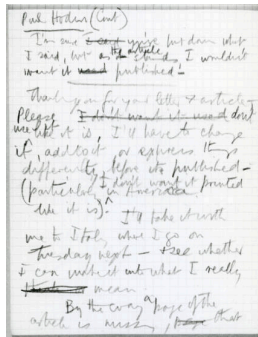 Paul Hodin (Cont)
I'm sure I said you've put down what
I said, but as the article stands, I wouldn't
want it used published -
Thank you for your letter & article -
Please I don't want it used don't
use it as it is, I'll have to change
it, add to it or express things
differently before it's published -
(particularly I don't want it printed
in America like it is). I'll take it with
me to Italy where I go on
Tuesday next - & see whether
I can make it into what I really
mean
By the way a page of the
article is missing, page that